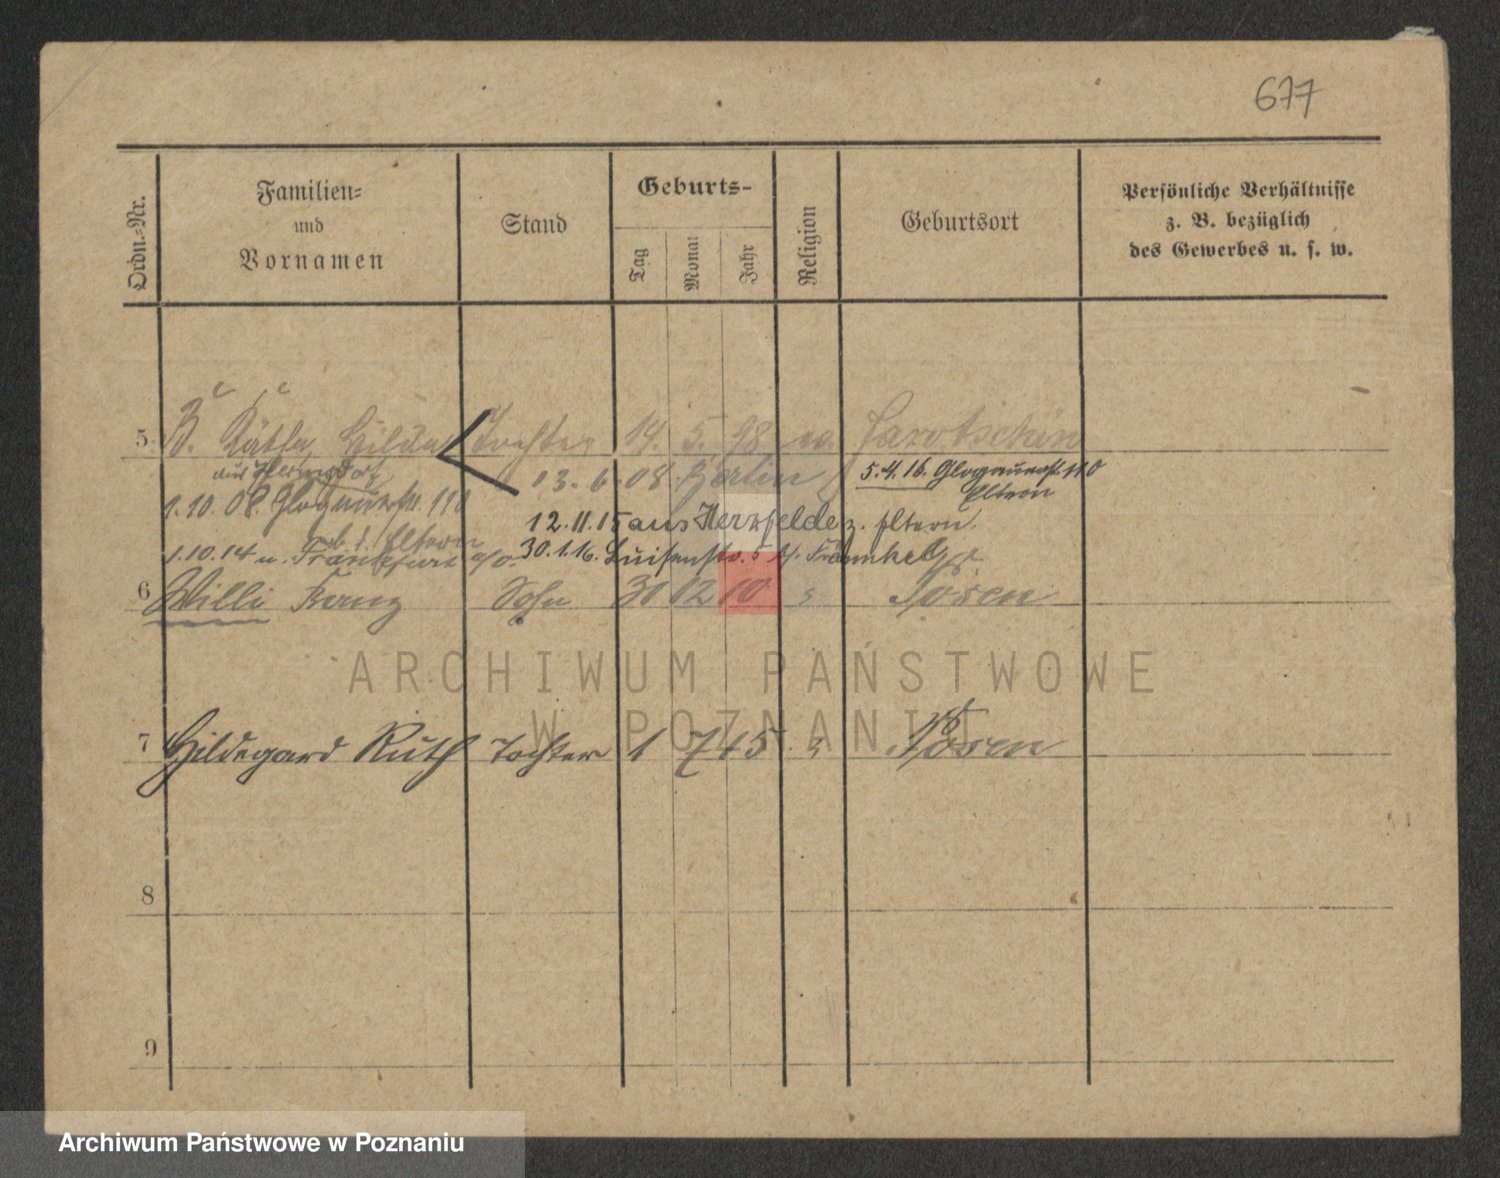 677
Ordn.-Nr.
Familien-
und
Vornamen
Stand
Geburts-
Tag
Monat
Jahr
Religion
Geburtsort
Persönliche Verhältnisse
z. B. bezüglich
des Gewerbes u. s. w.
5. Käthe Hilda Tochter 14. 5. 98 Jarotschin
aus 13. 6. 08. Berlin 5.4.16. Glogauerst. 110
Eltern
1.10.08. Glogauerstr. 110
12.11.15 aus Herrfelde z. Eltern.
b. d. Eltern
1.10.14 n. Frankfurt a/o. 30.1.16. Luisenstr. 5 b/. Fraenkel
6 Willi Franz Sohn 31 12 10 Posen
ARCHIWUM PAŃSTWOWE
W POZNANIU
7 Hildegard Ruth Tochter 1 7 15 Posen
8
9
Archiwum Państwowe w Poznaniu